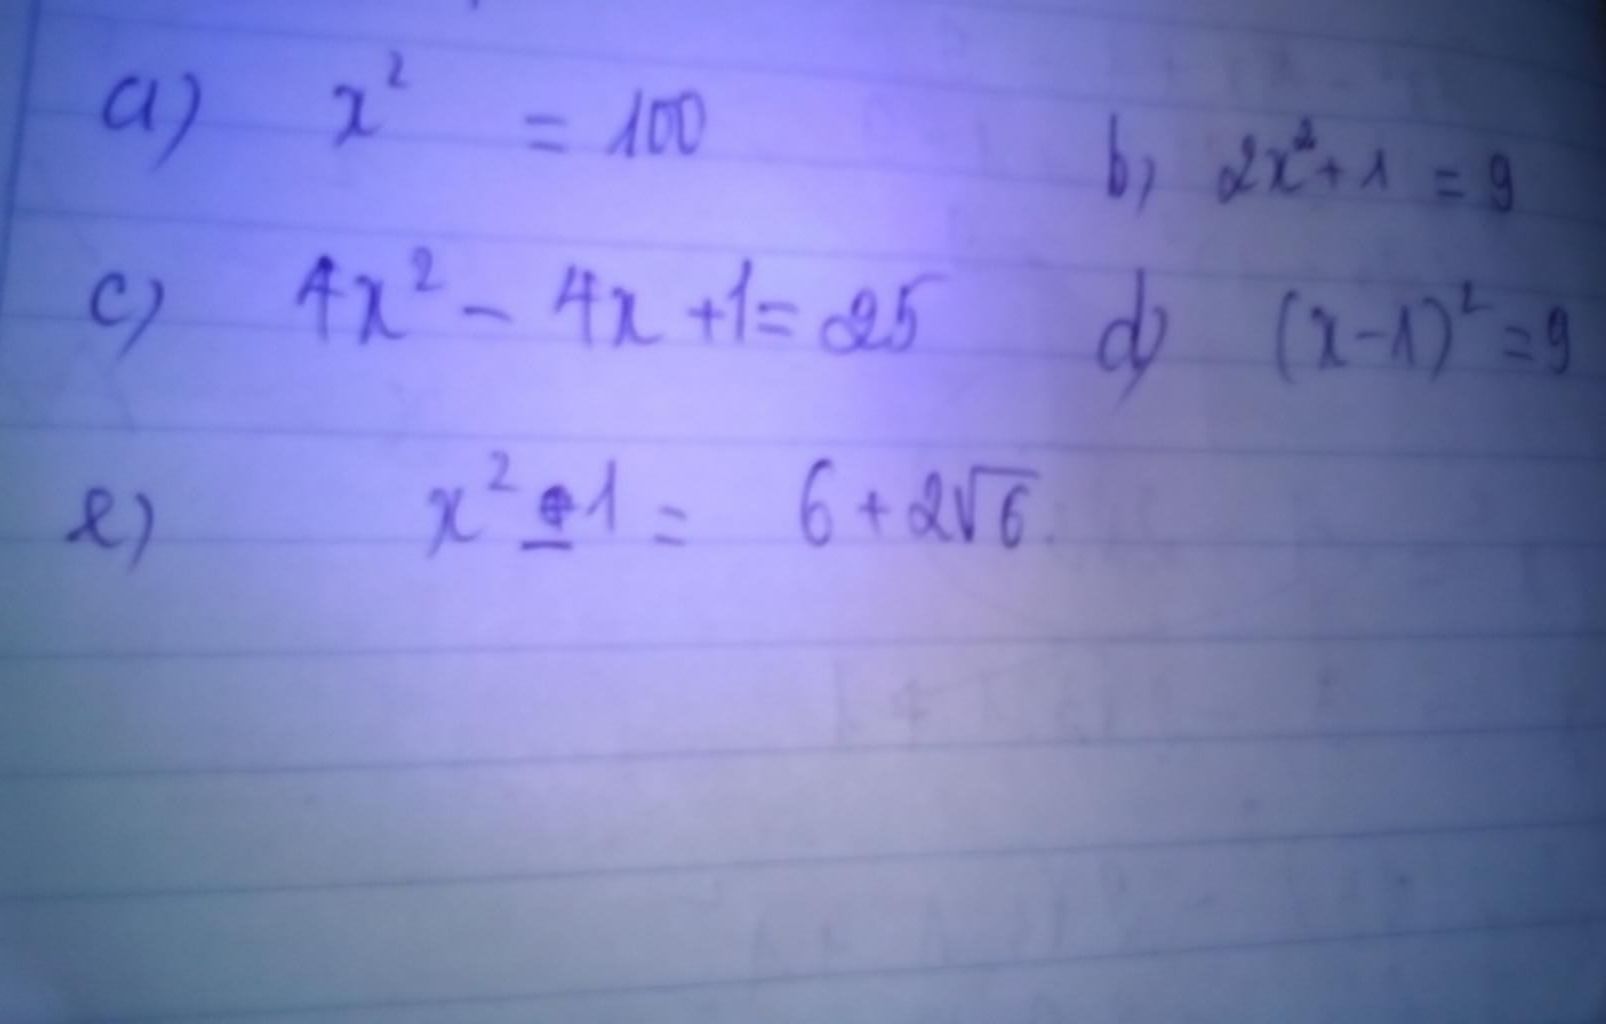 a) x² = 100 b) 2x² + 1 = 9
c) 4x² - 4x + 1 = 25 d) (x - 1)² = 9
e) x² - 1 = 6 + 2√6.